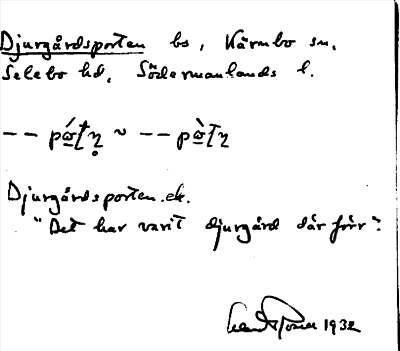 Djurgårdsporten bs, Kärnbo sn,
Selebo hd, Södermanlands l.
Djurgårdsporten. ek.
"Det har varit djurgård där förr".
1932